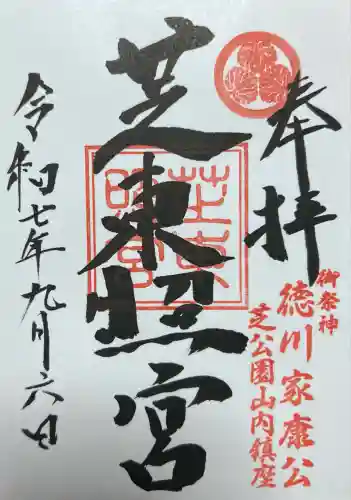 奉拝
御祭神
徳川家康公
芝公園山内鎮座
芝東照宮
芝東照宮
令和七年九月六日